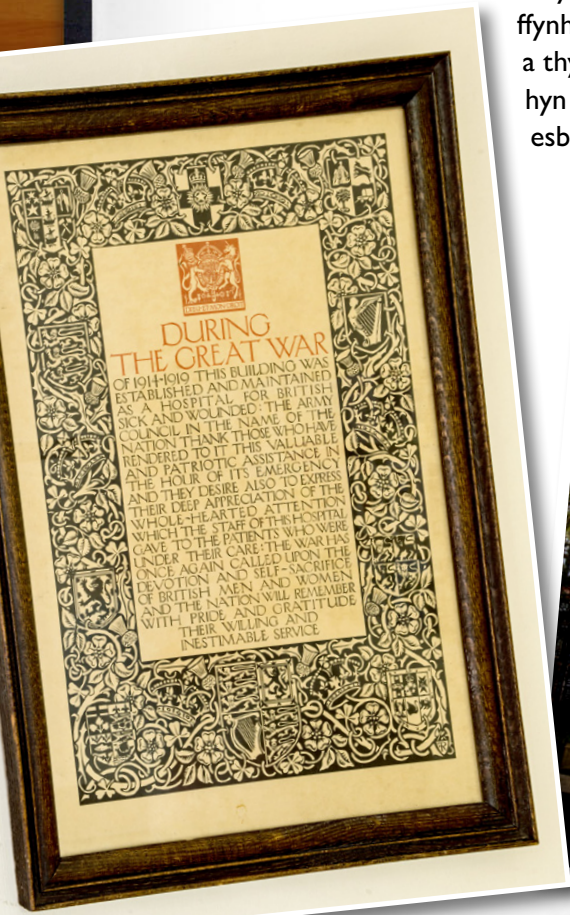 ffynh
a thy
hyn
esb
DURING
THE GREAT WAR
OF 1914-1919 THIS BUILDING WAS
ESTABLISHED AND MAINTAINED
AS A HOSPITAL FOR BRITISH
SICK AND WOUNDED: THE ARMY
COUNCIL IN THE NAME OF THE
NATION THANK THOSE WHO HAVE
RENDERED TO IT THIS VALUABLE
AND PATRIOTIC ASSISTANCE IN
THE HOUR OF ITS EMERGENCY
AND THEY DESIRE ALSO TO EXPRESS
THEIR DEEP APPRECIATION OF THE
WHOLE-HEARTED ATTENTION
WHICH THE STAFF OF THIS HOSPITAL
GAVE TO THE PATIENTS WHO WERE
UNDER THEIR CARE: THE WAR HAS
ONCE AGAIN CALLED UPON THE
DEVOTION AND SELF-SACRIFICE
OF BRITISH MEN AND WOMEN
AND THE NATION WILL REMEMBER
WITH PRIDE AND GRATITUDE
THEIR WILLING AND
INESTIMABLE SERVICE